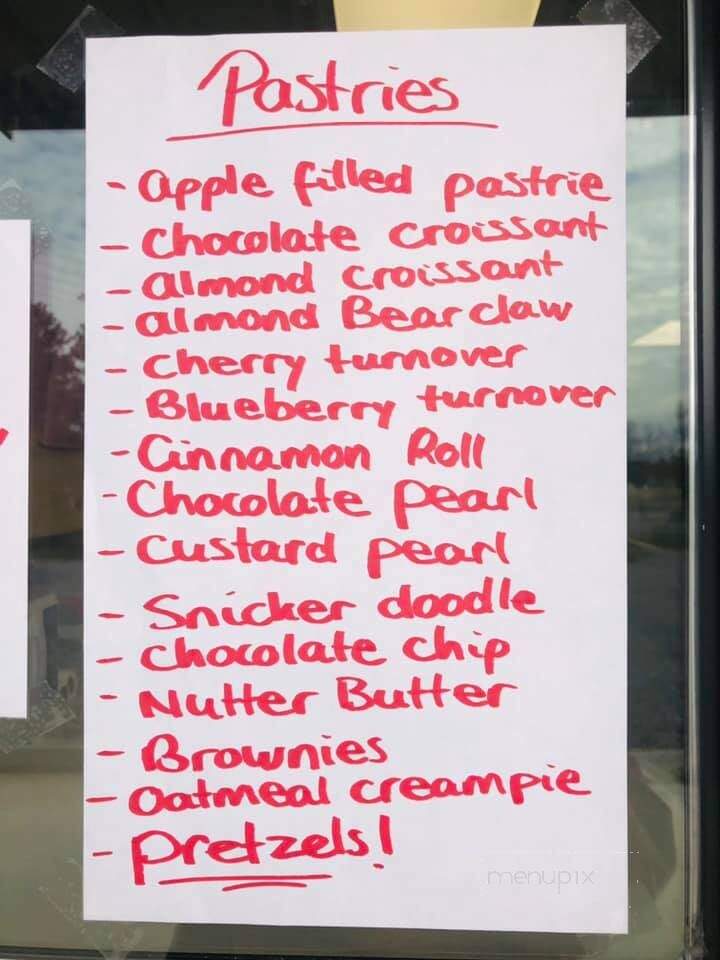 Pastries
- apple filled pastrie
- Chocolate croissant
- almond croissant
- almond Bear claw
- Cherry turnover
- Blueberry turnover
- Cinnamon Roll
- Chocolate pearl
- Custard pearl
- Snicker doodle
- Chocolate chip
- Nutter Butter
- Brownies
- Oatmeal creampie
- Pretzels!
menupix